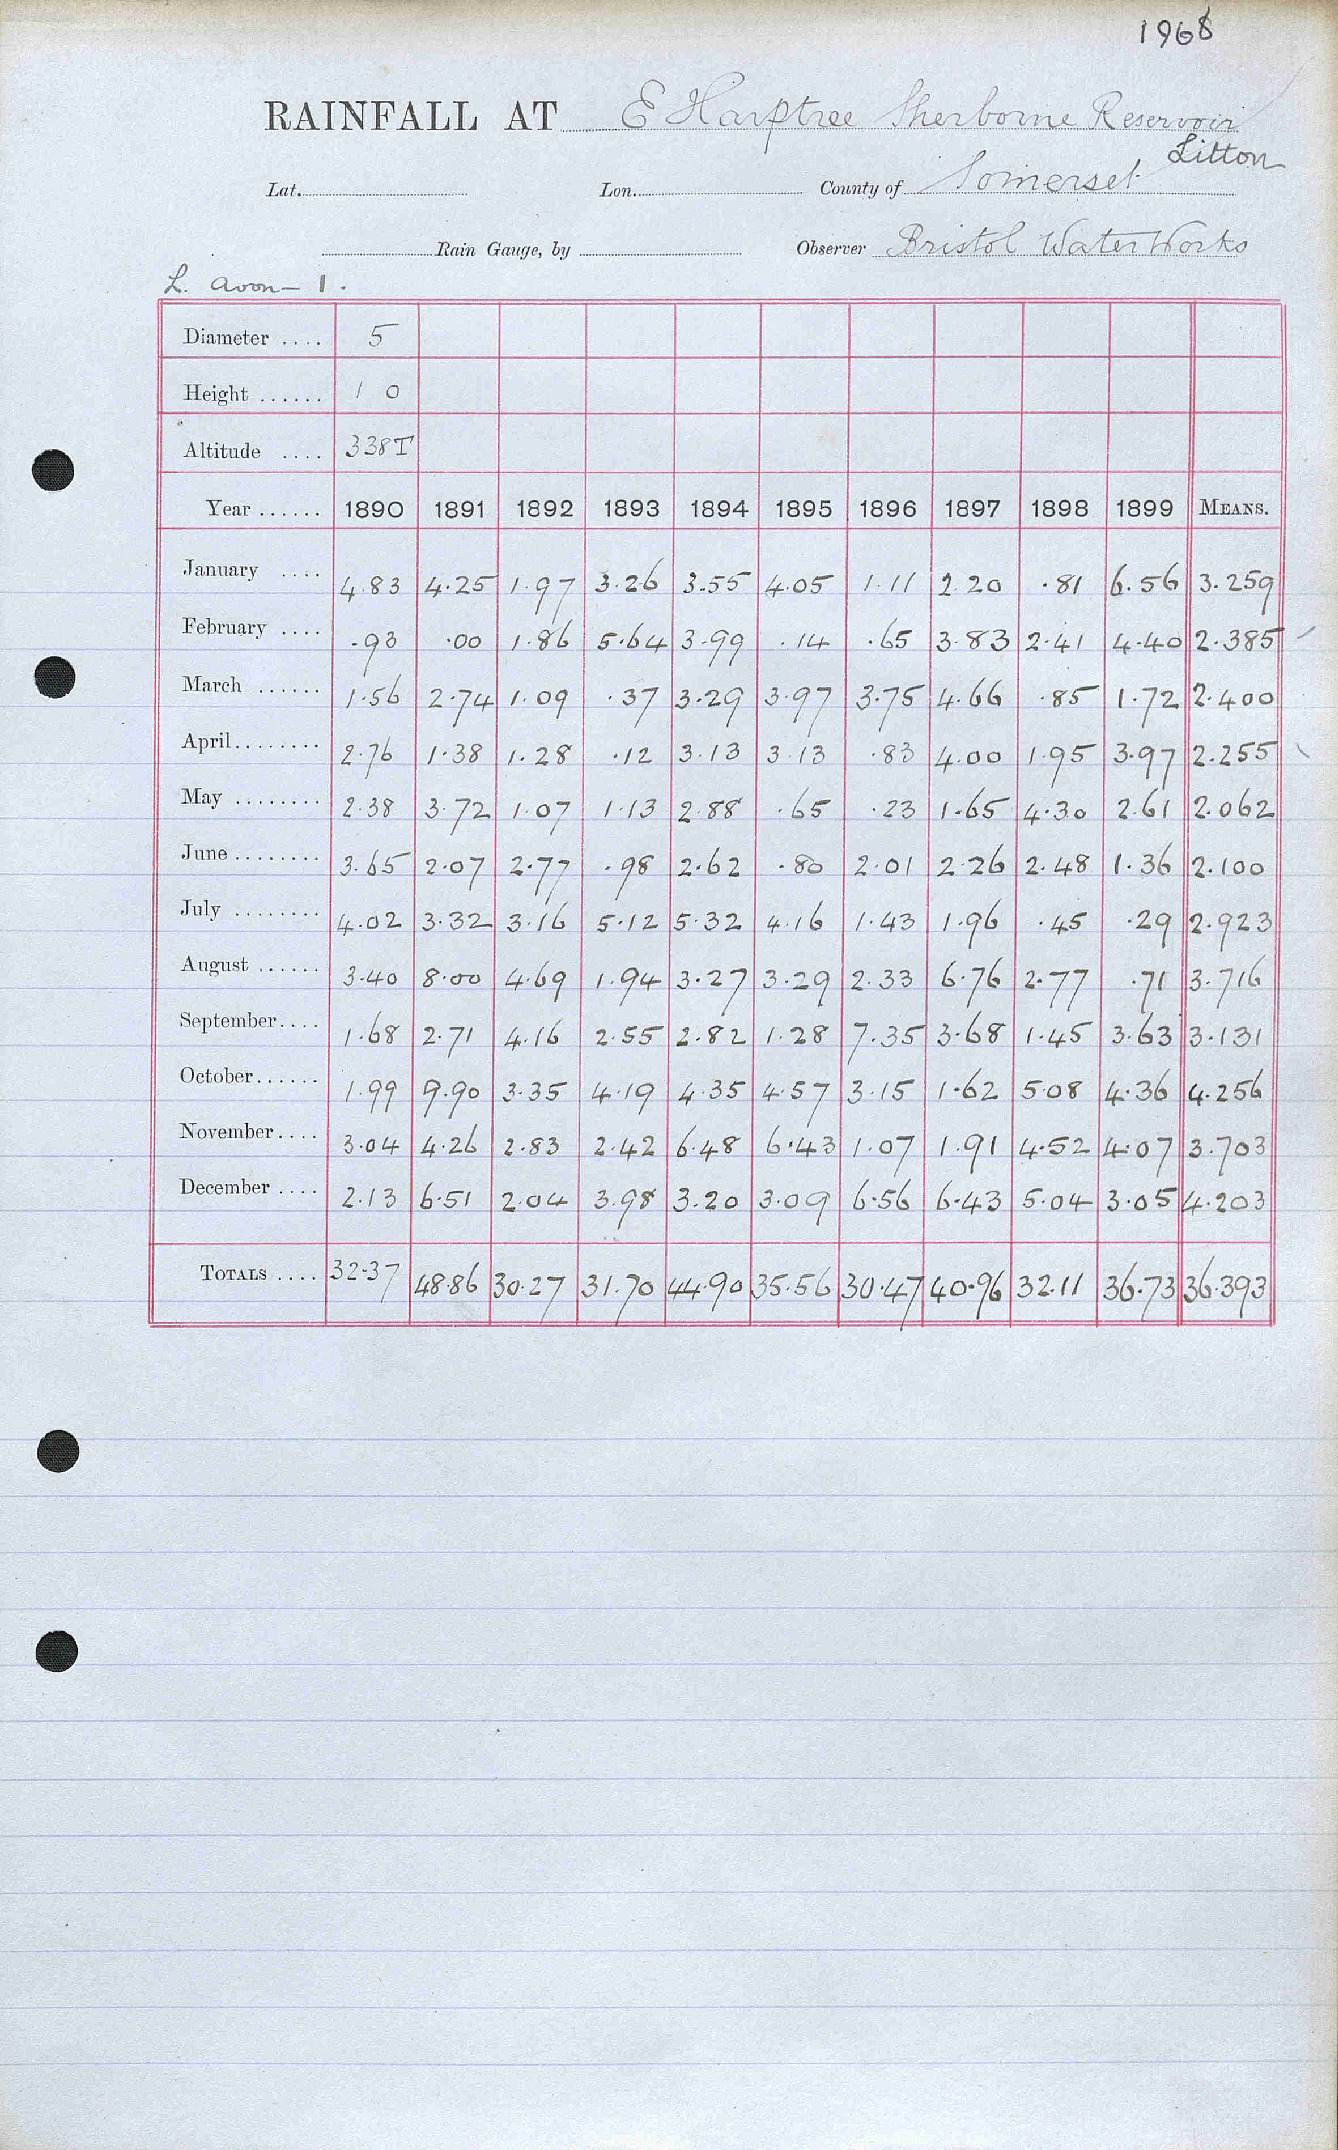 1968
RAINFALL AT E Harptree Sherborne Reservoir
Litton
Lat. Lon. County of Somerset
Rain Gauge, by Observer Bristol Water Works
L. Avon - 1.
Diameter .... 5
Height ...... 1 0
Altitude .... 338T
Year ...... 1890 1891 1892 1893 1894 1895 1896 1897 1898 1899 MEANS.
January .... 4.83 4.25 1.97 3.26 3.55 4.05 1.11 2.20 .81 6.56 3.259
February .... .93 .00 1.86 5.64 3.99 .14 .65 3.83 2.41 4.40 2.385
March ...... 1.56 2.74 1.09 .37 3.29 3.97 3.75 4.66 .85 1.72 2.400
April........ 2.76 1.38 1.28 .12 3.13 3.13 .83 4.00 1.95 3.97 2.255
May ........ 2.38 3.72 1.07 1.13 2.88 .65 .23 1.65 4.30 2.61 2.062
June ........ 3.65 2.07 2.77 .98 2.62 .80 2.01 2.26 2.48 1.36 2.100
July ........ 4.02 3.32 3.16 5.12 5.32 4.16 1.43 1.96 .45 .29 2.923
August ...... 3.40 8.00 4.69 1.94 3.27 3.29 2.33 6.76 2.77 .71 3.716
September.... 1.68 2.71 4.16 2.55 2.82 1.28 7.35 3.68 1.45 3.63 3.131
October...... 1.99 9.90 3.35 4.19 4.35 4.57 3.15 1.62 5.08 4.36 4.256
November.... 3.04 4.26 2.83 2.42 6.48 6.43 1.07 1.91 4.52 4.07 3.703
December .... 2.13 6.51 2.04 3.98 3.20 3.09 6.56 6.43 5.04 3.05 4.203
TOTALS .... 32.37 48.86 30.27 31.70 44.90 35.56 30.47 40.96 32.11 36.73 36.393